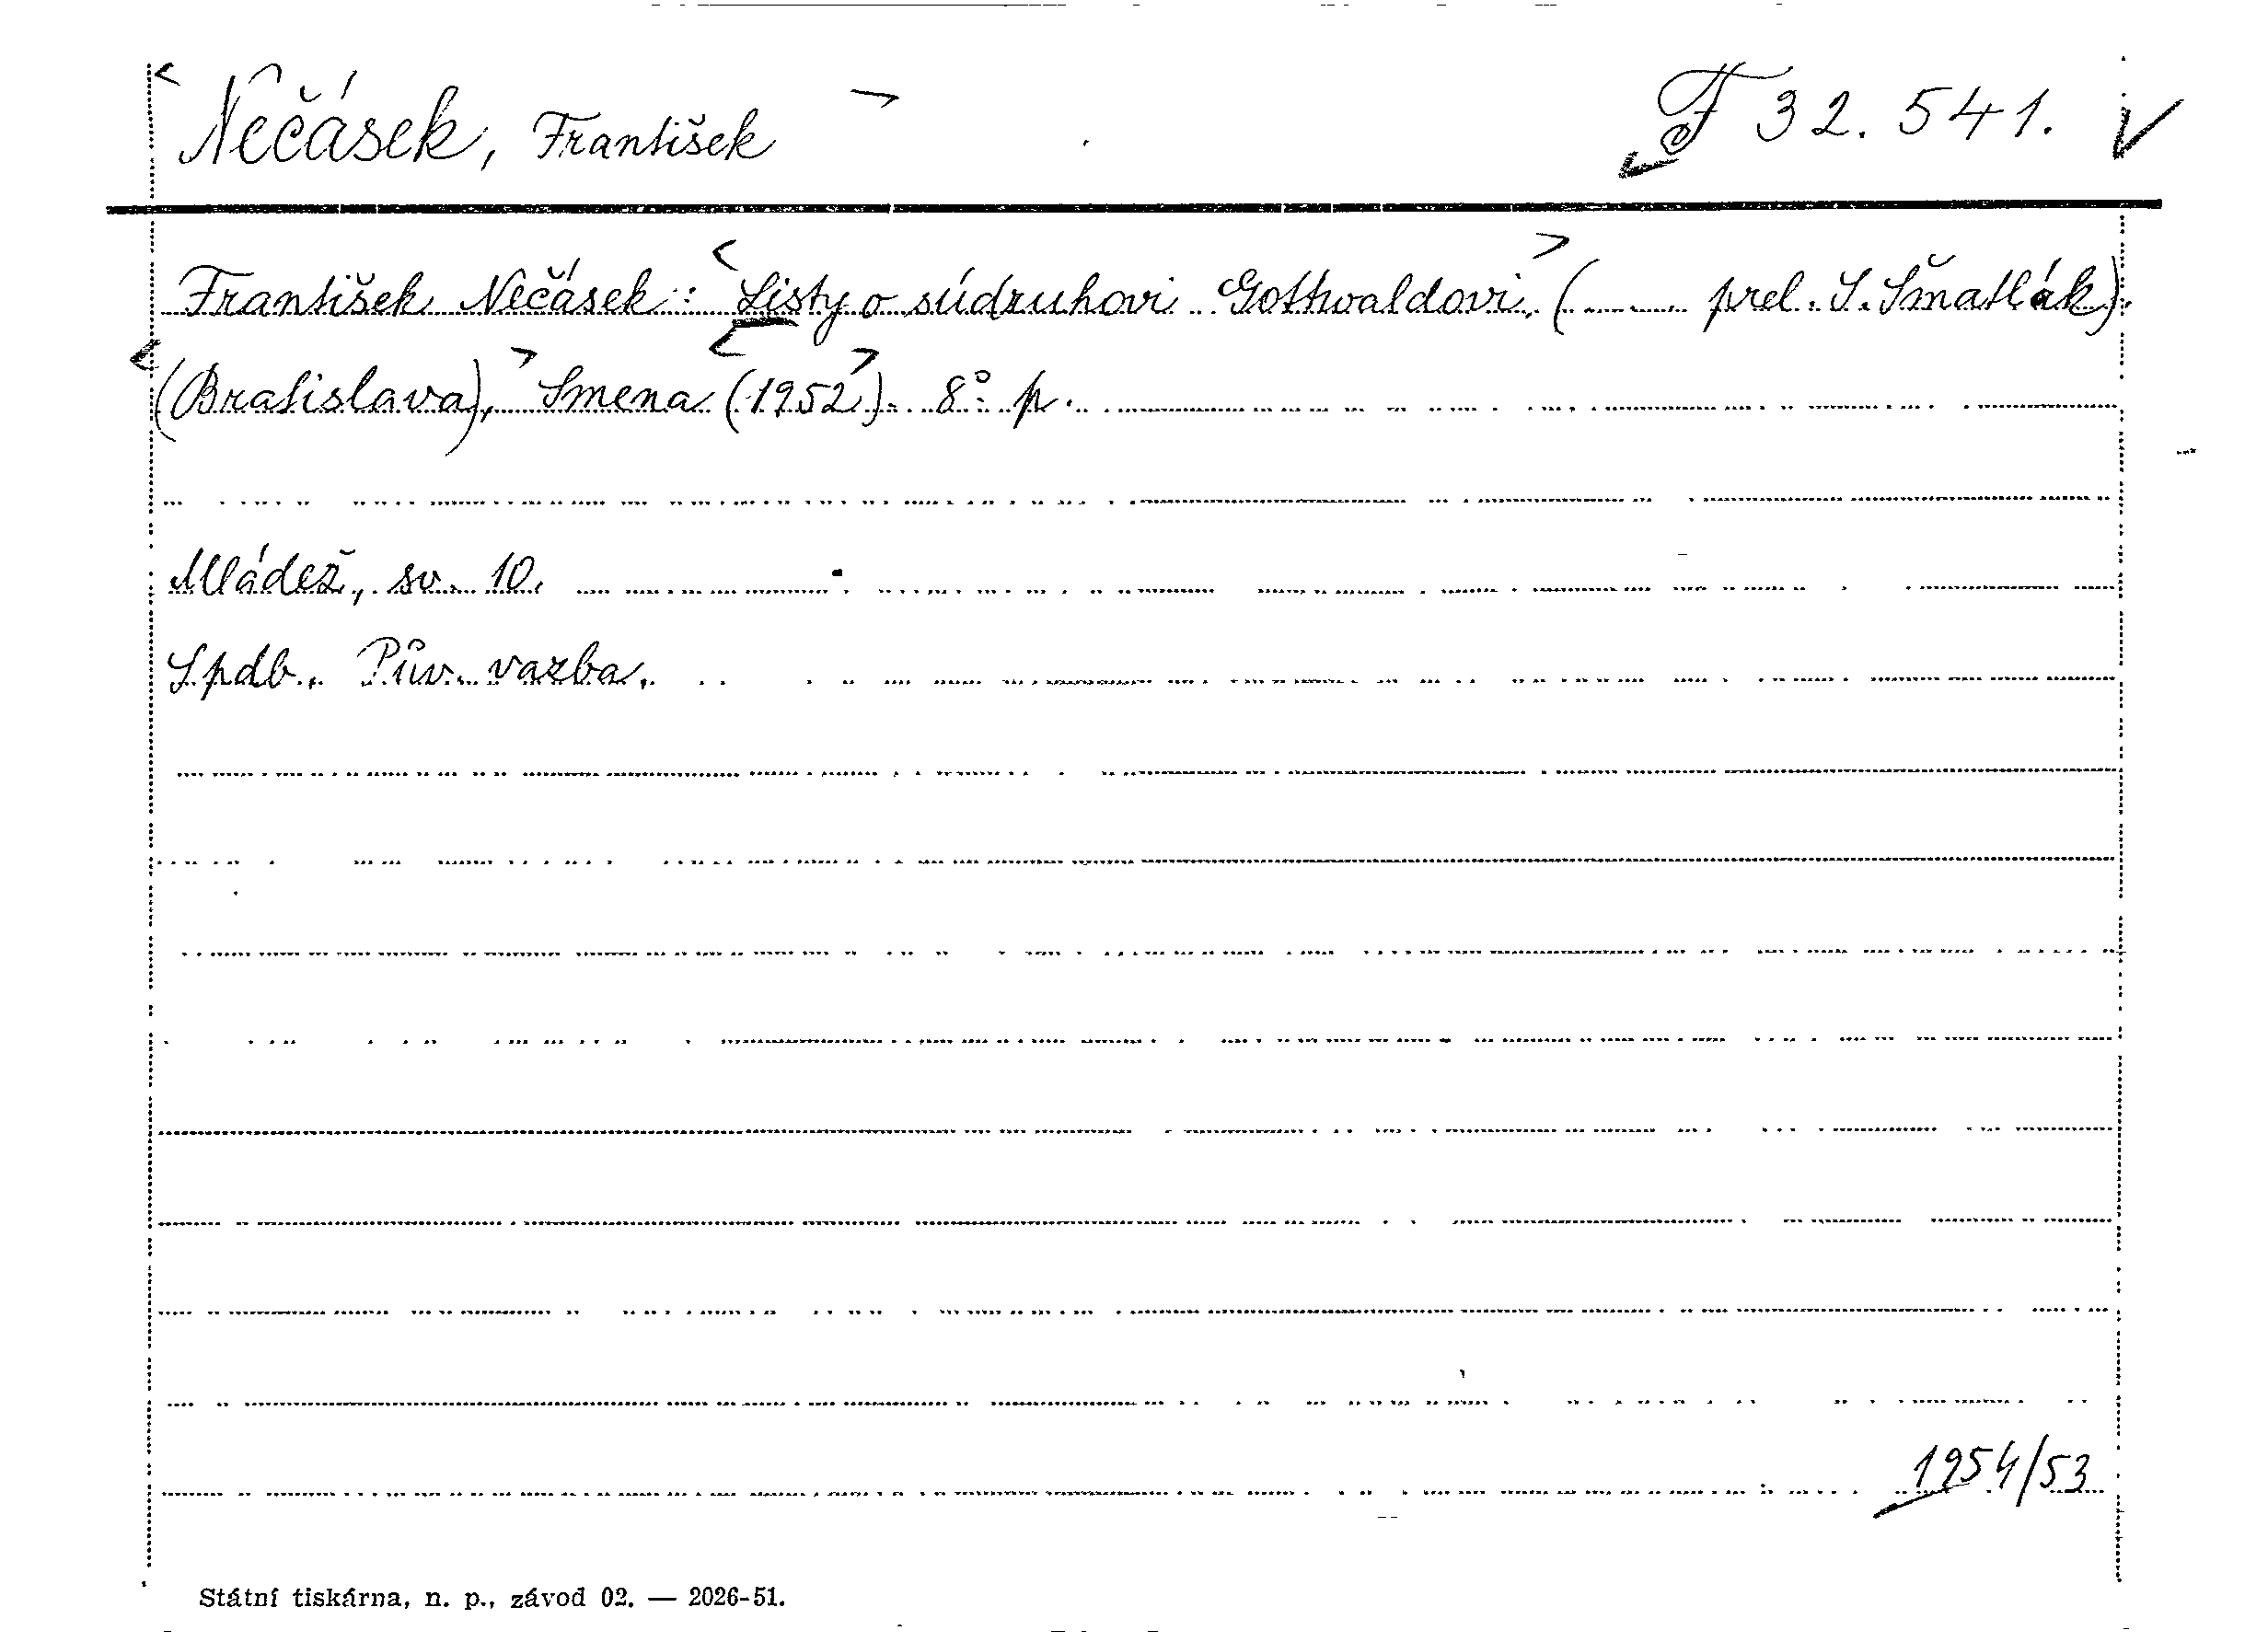 Nečásek, František F 32.541.
František Nečásek: Listy o súdruhovi Gottwaldovi. (........ prel. S. Šmatlák).
(Bratislava), Smena (1952). 8° p.
Mládež, sv. 10.
Spdb. Pův. vazba.
1954/53
Státní tiskárna, n. p., závod 02. — 2026-51.